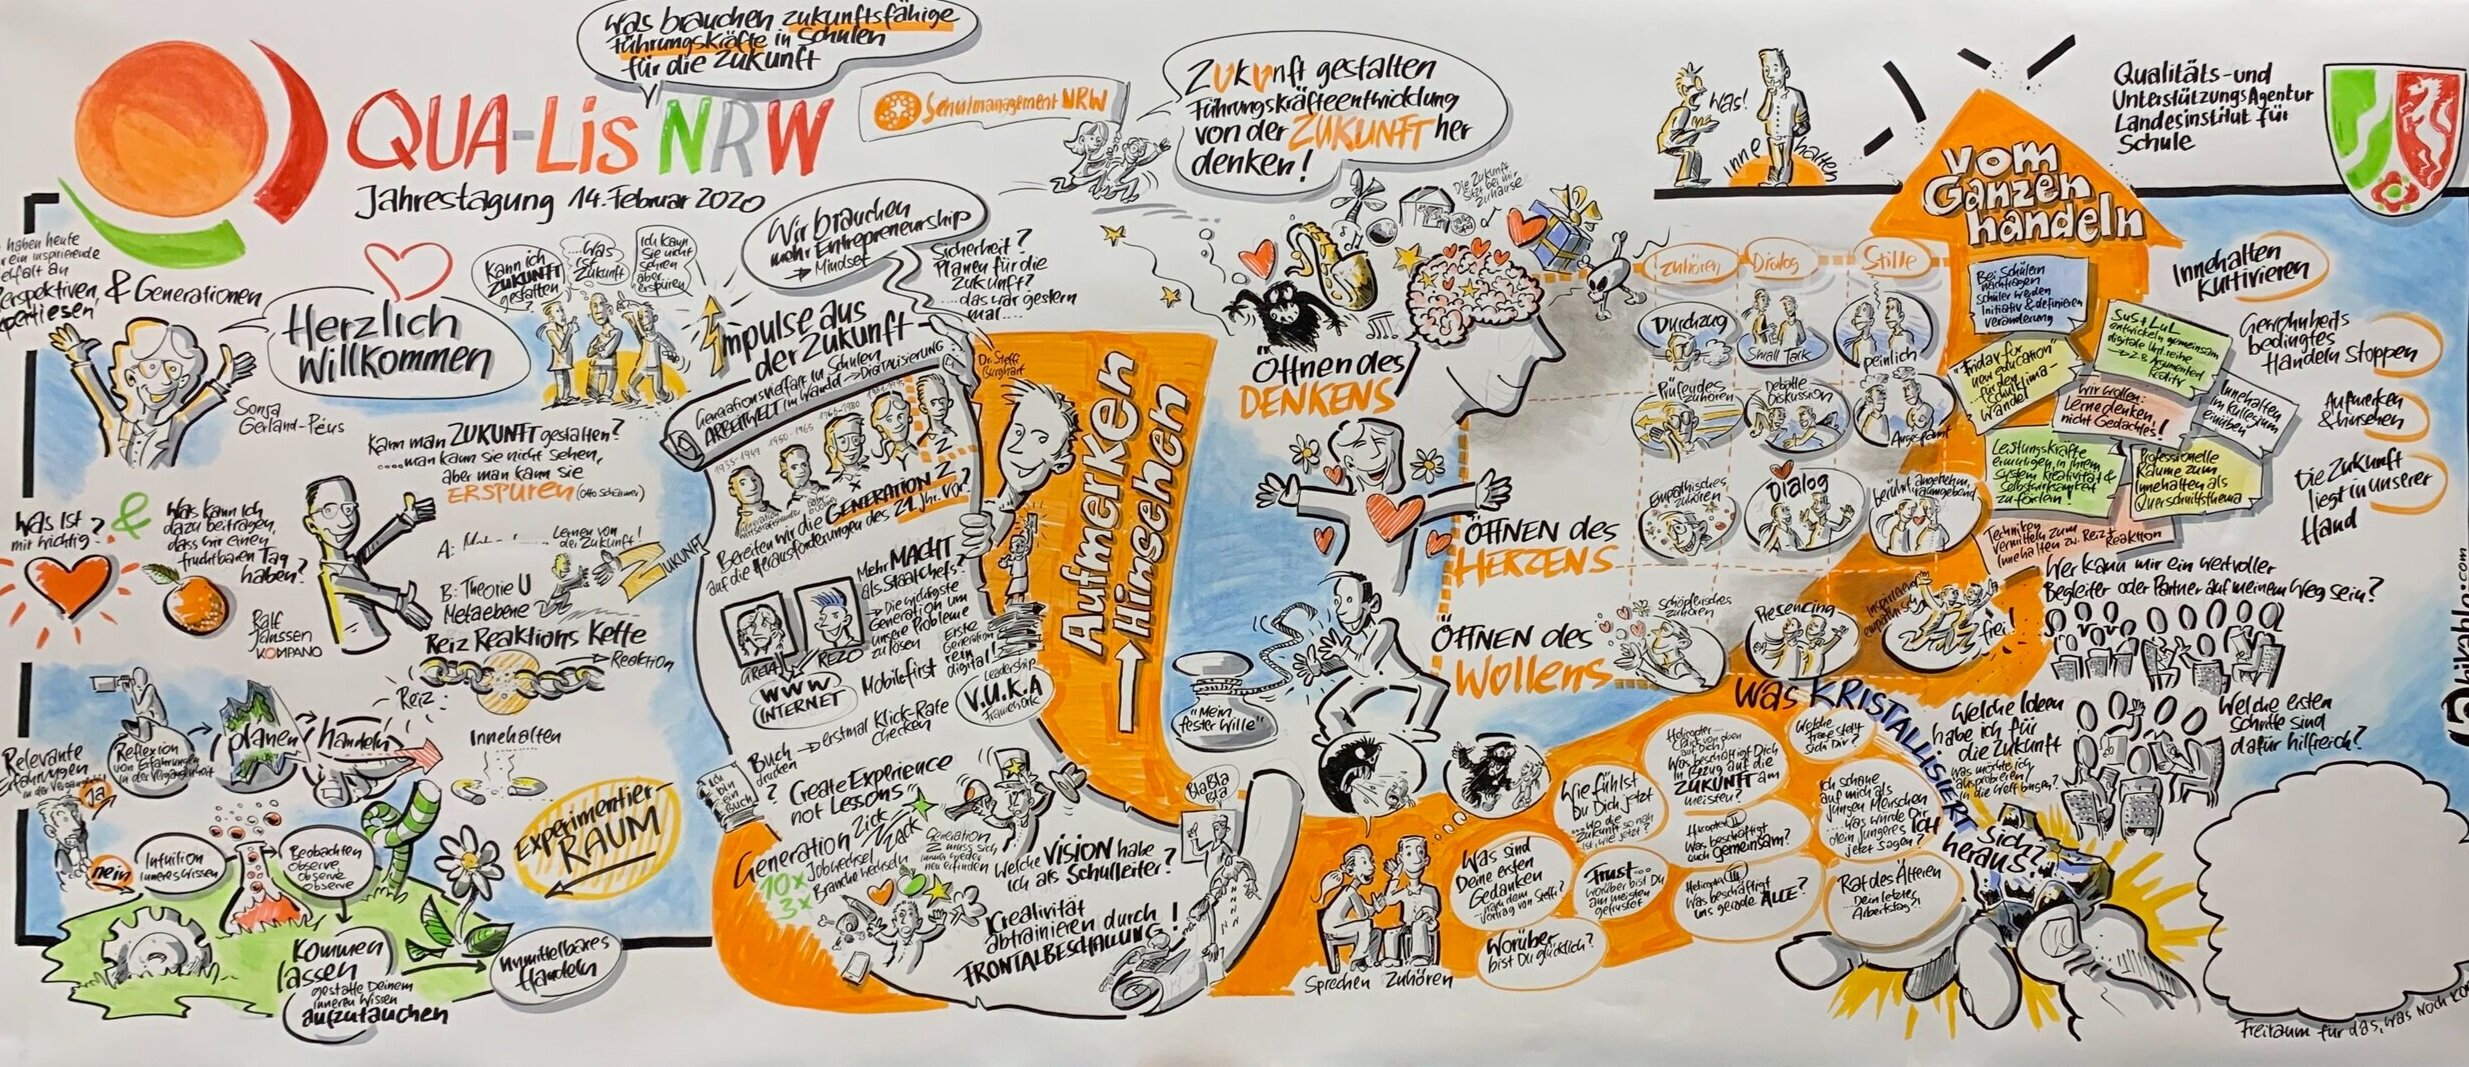 Was brauchen zukunftsfähige
Führungskräfte in Schulen
für die Zukunft
QUA-LiS NRW
Jahrestagung 14. Februar 2020
Schulmanagement NRW
Zukunft gestalten
Führungskräfteentwicklung
von der ZUKUNFT her
denken!
haben heute
ein inspirierende
an
Perspektiven,
& Generationen
Herzlich
Willkommen
Sonja
Gerland-Péus
Kann ich
ZUKUNFT
gestalten
...Was
ist
Zukunft
Ich kann
Sie nicht
sehen
aber...
erspüren
Wir brauchen
mehr Entrepreneurship
→ Mindset
Sicherheit?
Planen für die
Zukunft?
....das war gestern
mal....
Kann man ZUKUNFT gestalten?
....man kann sie nicht sehen,
aber man kann sie
ERSPÜREN (Otto Scharmer)
Was ist
mir wichtig?
&
Was kann ich
dazu beitragen,
dass wir einen
fruchtbaren Tag
haben?
Ralf
Janssen
KOMPANO
A:
Lernen von
der Zukunft!
ZUKUNFT
B: Theorie U
Metaebene
Reiz Reaktions Kette
→ Reaktion
Reiz
Innehalten
Relevante
Erfahrungen
in der Vergangenheit
Reflexion
von Erfahrungen
in der Vergangenheit
planen
handeln
ja
nein
Intuition
inneres Wissen
Beobachten
observe
observe
observe
EXPERIMENTIER-
RAUM
Kommen
lassen
gestatte Deinem
inneren Wissen
aufzutauchen
unmittelbares
Handeln
Impulse aus
der Zukunft
Dr. Steffi
Burghart
Generationsvielfalt in Schulen
ARBEITWELT im Wandel → DIGITALISIERUNG
1935-1949
1950-1965
1966-1980
X
Bereiten wir die GENERATION Z
auf die Herausforderungen des 21. Jhr. vor?
Mehr MACHT
als Staatchefs?
→ Die wichtigste
Generation um
unsere Probleme
zu lösen
GRETA
REZO
WWW
INTERNET
Mobile first
Erste
Generation
rein
digital!
Leadership
V.U.K.A
Framework
→ erstmal Klick-Rate
checken
Buch
drucken
?
Ich
bin
ein
Buch
Create Experience
not Lessons"
Generation Zick
Zack
10x Jobwechsel
3x Branche wechseln
Generation
Z muss sich
immer wieder
neu erfinden
Welche VISION habe
ich als Schulleiter?
Kreativität
abtrainieren durch
FRONTALBESCHALLUNG!
BlaBla
Bla
Aufmerken
→ Hinsehen
Die Zukunft
sitzt bei mir
zuhause
Öffnen des
DENKENS
ÖFFNEN des
HERZENS
ÖFFNEN des
Wollens
"Mein
fester Wille"
Was!
inne halten
zuhören
Dialog
Stille
Durchzug
Small Talk
peinlich
Prüfendes
zuhören
Debatte
Diskussion
Angespannt
Empathisches
zuhören
Dialog
berührt, angenehm,
raumgebend
Schöpferisches
zuhören
Presencing
frei!
Sprechen Zuhören
Was sind
Deine ersten
Gedanken
nach dem
Vortrag von Steffi?
Wie fühlst
Du Dich jetzt
...wo die
Zukunft so nah
ist, wie jetzt?
Frust...
worüber bist Du
am meisten
gefrustet
Worüber
bist Du glücklich?
Helicopter...
(Blick von oben
auf Dich)
Was beschäftigt Dich
in Bezug auf die
ZUKUNFT am
meisten?
Helicopter II
Was beschäftigt
euch gemeinsam?
Helicopter III
Was beschäftigt
uns gerade ALLE?
Welche
Frage stellst
Dir?
Ich schaue
auf mich als
jungen Menschen
...was würde Dir
dein jüngeres ICH
jetzt sagen?
Rat des Älteren
...Dein letzter
Arbeitstag...
Was KRISTALLISIERT
Sich?
heraus!
vom
Ganzen
handeln
Bei Schülern
nachfragen
Schüler werden
initiativ & definieren
Veränderung
SuS + LuL
entwickeln gemeinsam
digitale Unt.reihe
"Friday for
new education"
für den
Schulklima-
Wandel
Wir wollen:
Lerne denken,
nicht Gedachtes!
Innehalten
im Kollegium
einüben
Leistungskräfte
ermutigen, in ihrem
System Kreativität &
Selbstwirksamkeit
zu fördern!
Professionelle
Räume zum
Innehalten als
Querschnittsthema
Techniken
vermitteln zum
Innehalten zw. Reiz + Reaktion
Qualitäts- und
UnterstützungsAgentur
Landesinstitut für
Schule
Innehalten
kultivieren
Gewohnheits
bedingtes
Handeln stoppen
Aufmerken
& hinsehen
Die Zukunft
liegt in unserer
Hand
Wer kann mir ein wertvoller
Begleiter oder Partner auf meinem Weg sein?
Welche Ideen
habe ich für
die Zukunft
Was möchte ich
ausprobieren/
in die Welt bringen?
Welche ersten
Schritte sind
dafür hilfreich?
Freiraum für das, was noch